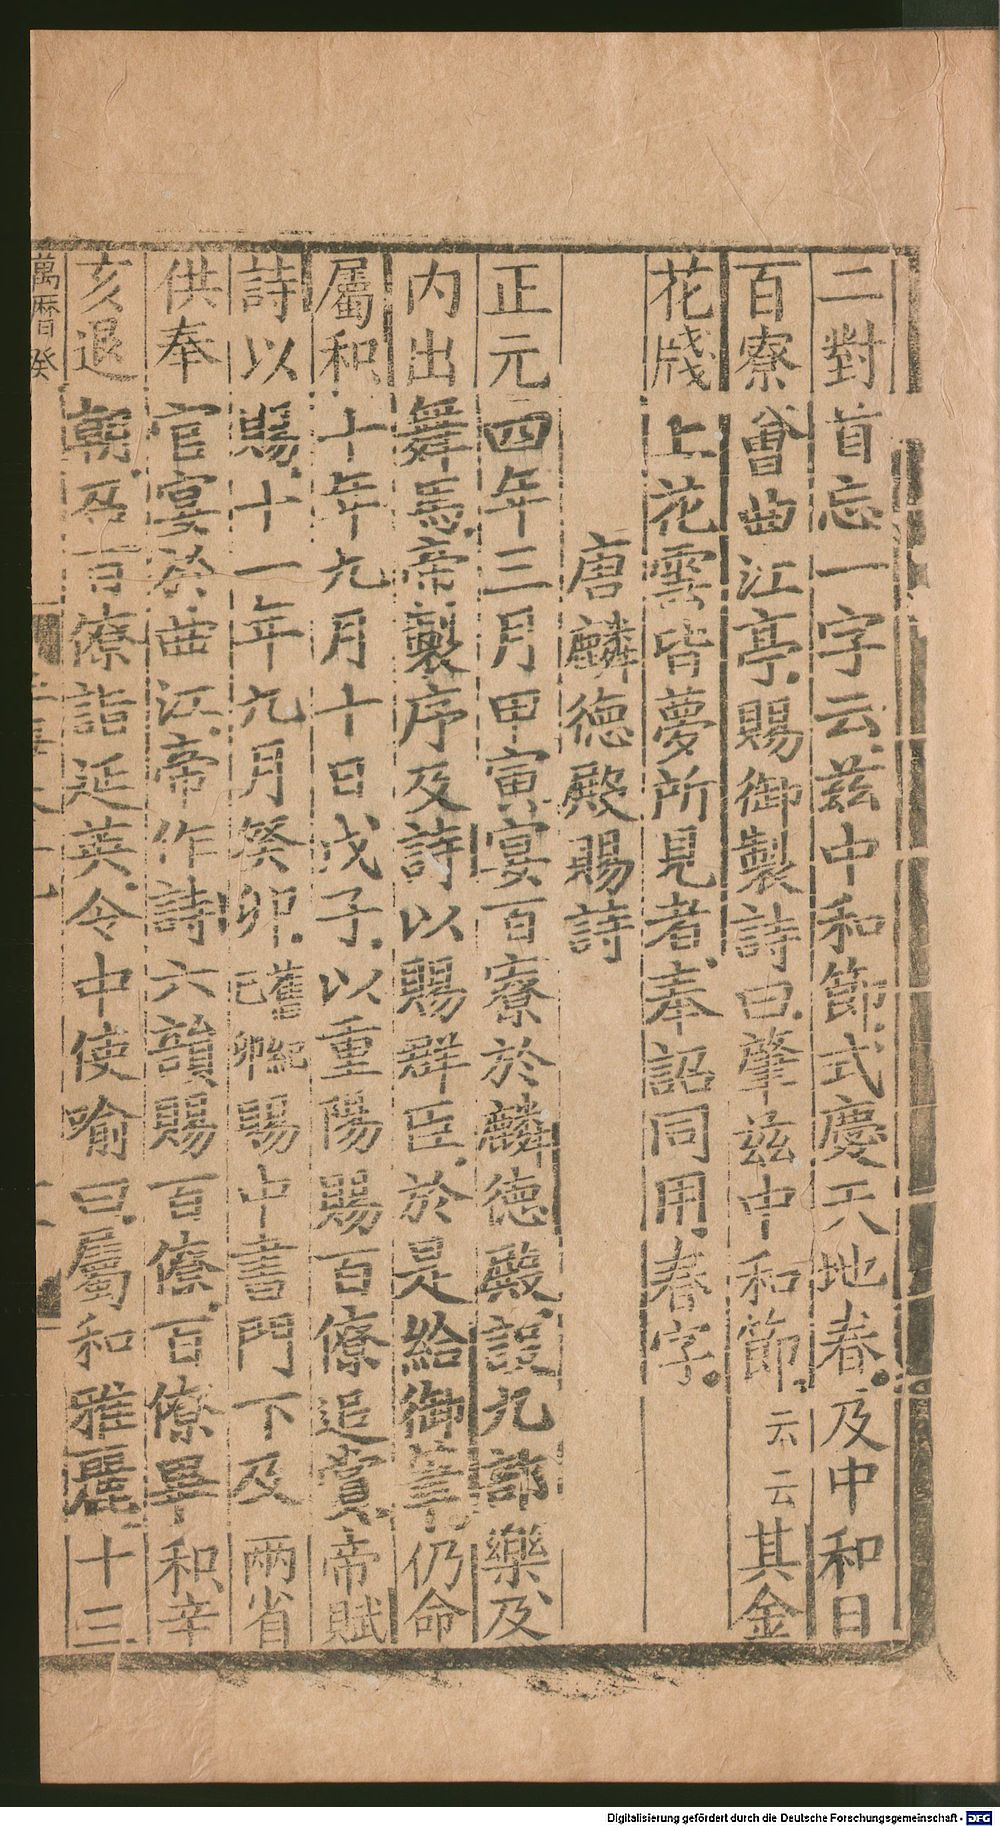 二對首忘一字云茲中和節式慶天地春及中和日
百寮會曲江亭賜御製詩曰肇茲中和節云云其金
花牋上花雲皆夢所見者奉詔同用春字
唐麟德殿賜詩
正元四年三月甲寅宴百寮於麟德殿設九部樂及
内出舞馬帝製序及詩以賜群臣於是給御筆仍命
屬和十年九月十日戊子以重陽賜百僚追賞帝賦
詩以賜十一年九月癸卯舊紀己卯賜中書門下及兩省
供奉官宴於曲江帝作詩六韻賜百僚百僚畢和辛
亥退朝召百僚詣延英令中使喻曰屬和雅麗十三
萬曆癸
Digitalisierung gefördert durch die Deutsche Forschungsgemeinschaft - DFG